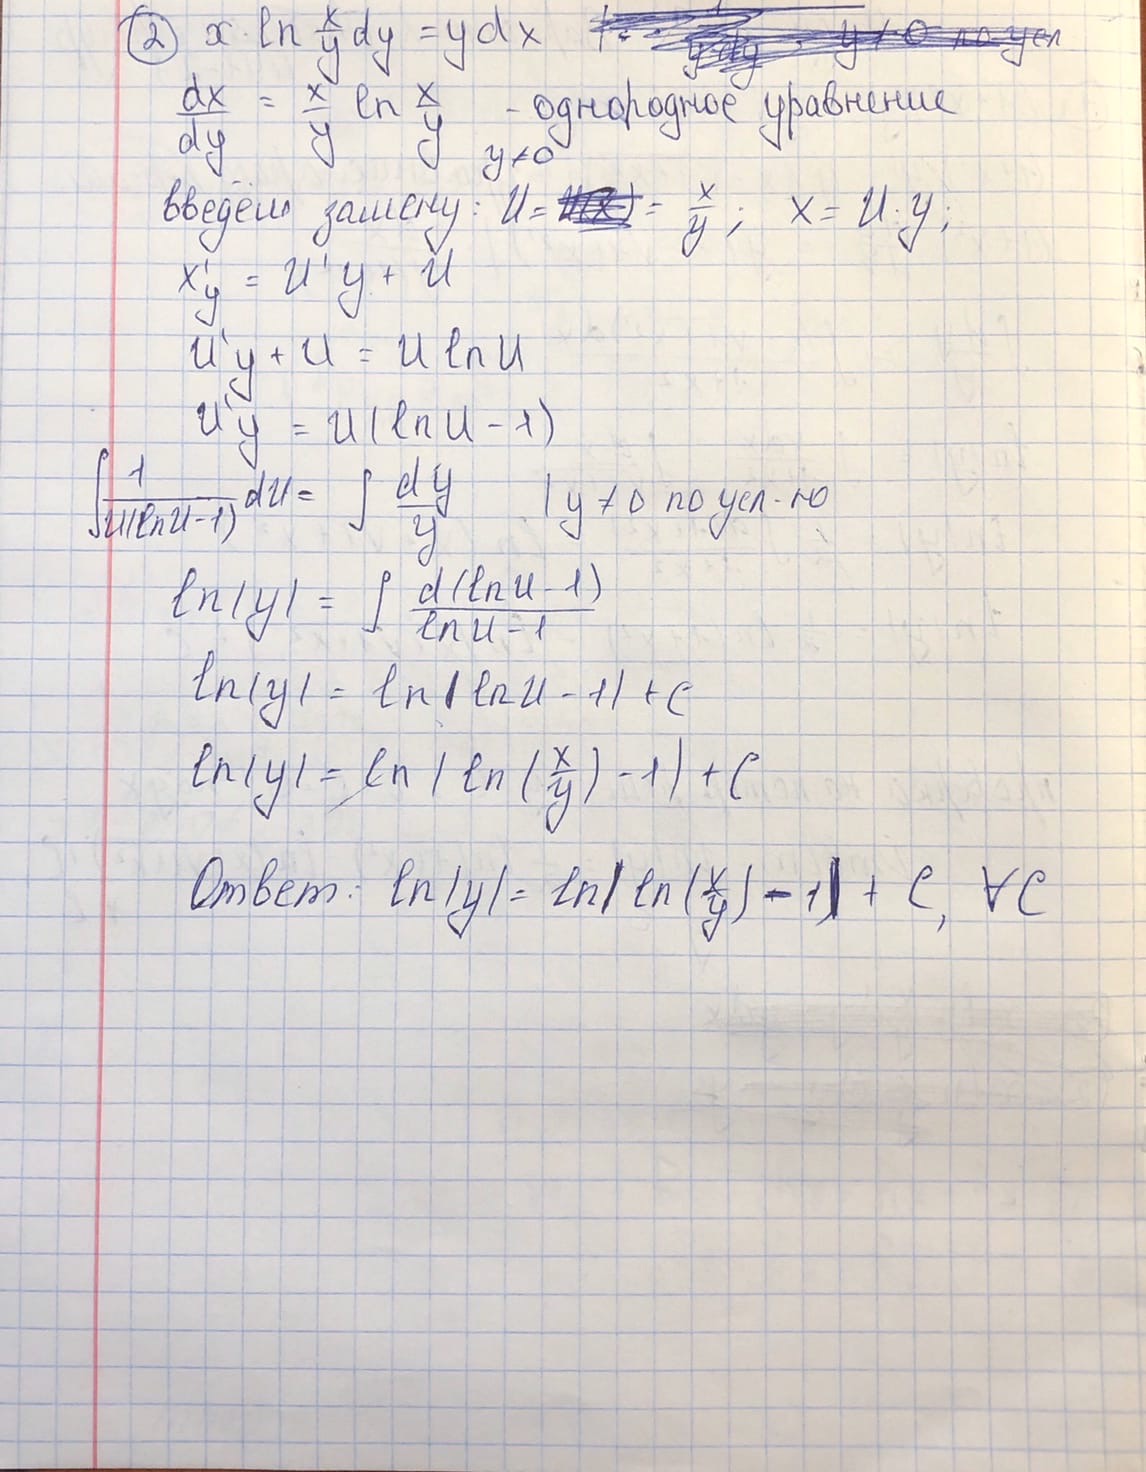 ② x · ln x/y dy = y dx
dx/dy = x/y ln x/y - однородное уравнение
y≠0
введём замену: U = = x/y; x = U · y;
x'y = U'y + U
U'y + U = U ln U
U'y = U(ln U - 1)
∫ 1/(U(ln U - 1)) dU = ∫ dy/y | y ≠ 0 по усл-ю
ln|y| = ∫ d(ln U - 1)/(ln U - 1)
ln|y| = ln|ln U - 1| + C
ln|y| = ln|ln(x/y) - 1| + C
Ответ: ln|y| = ln|ln(x/y) - 1| + C, ∀C